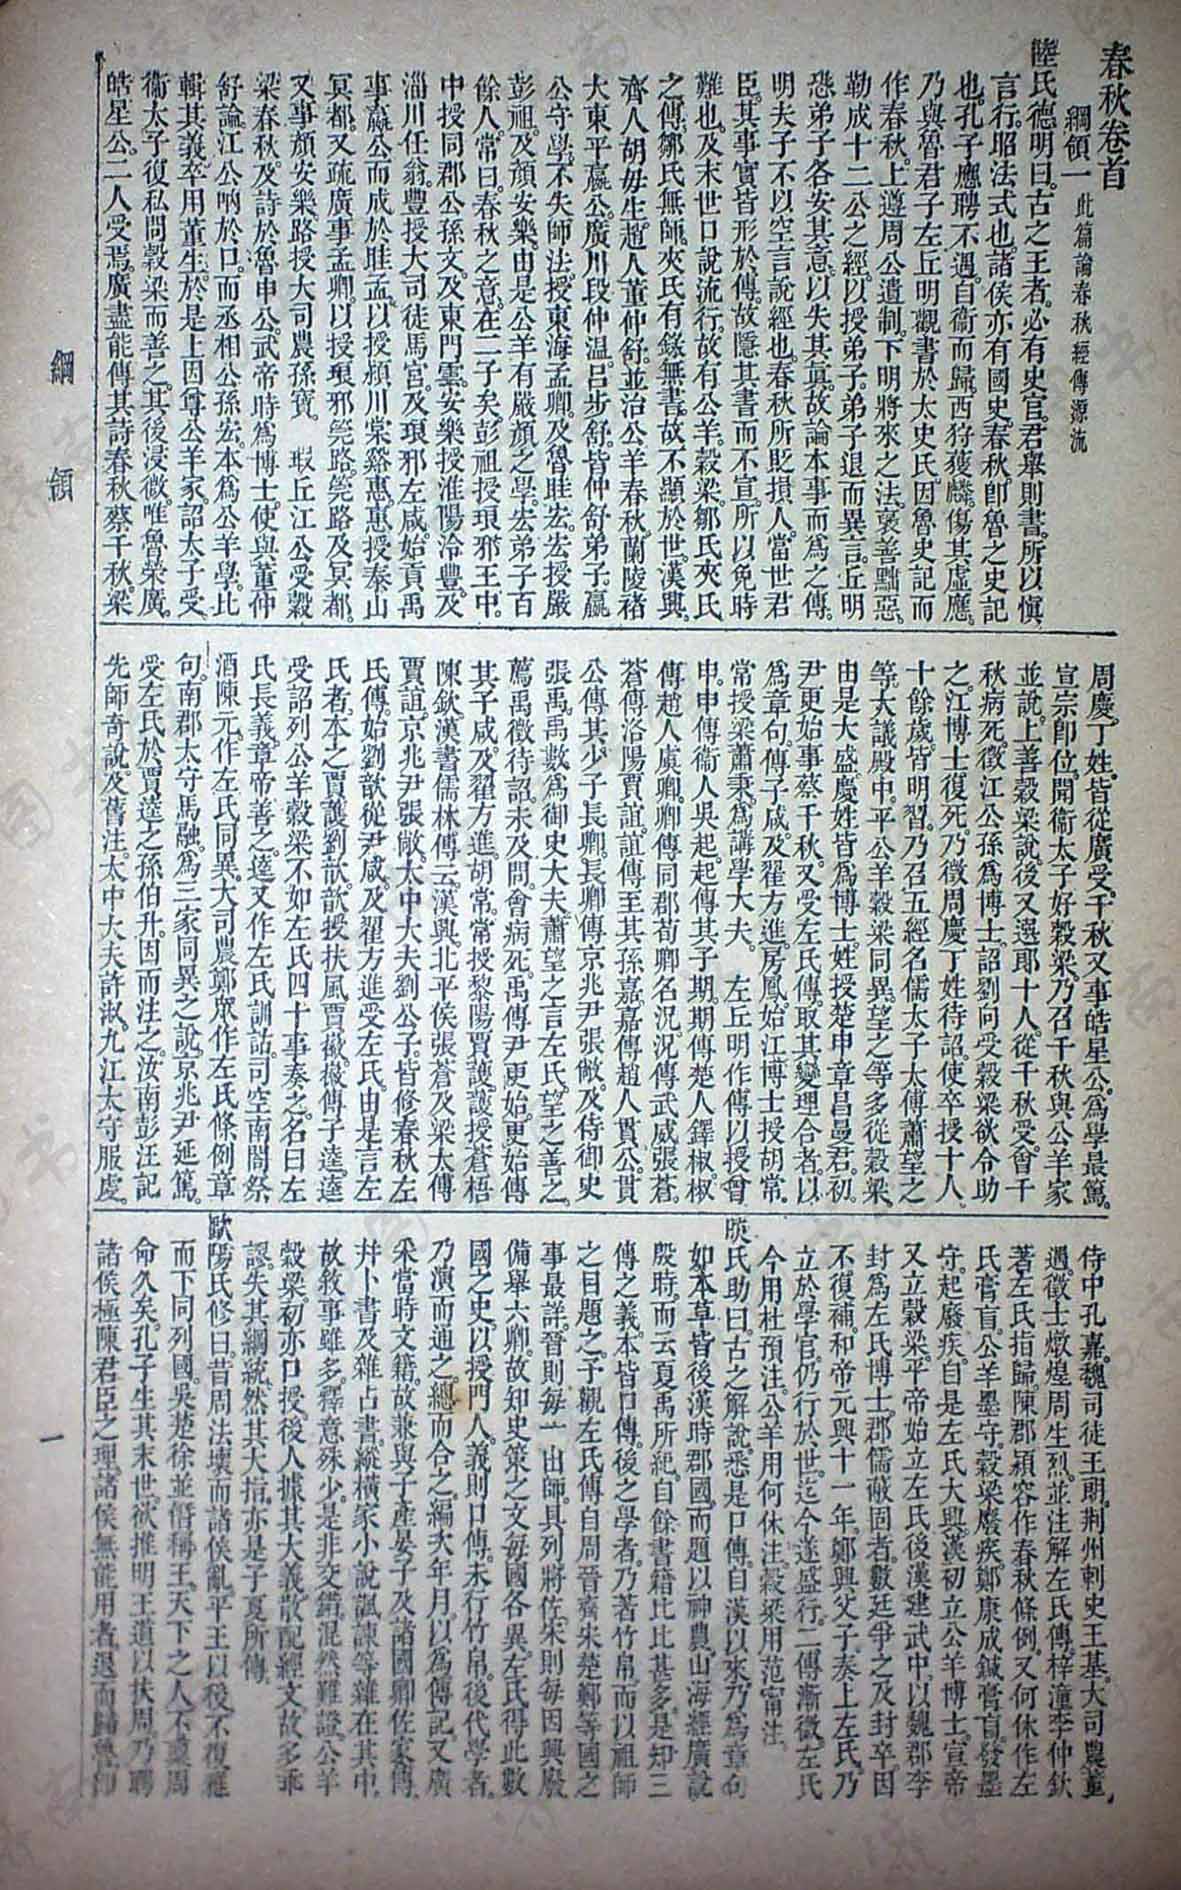 春秋卷首
綱領一 此篇論春秋經傳源流
陸氏德明曰。古之王者。必有史官。君舉則書。所以愼
言行。昭法式也。諸侯亦有國史。春秋。卽魯之史記
也。孔子應聘不遇。自衞而歸。西狩獲麟。傷其虛應。
乃與魯君子左丘明觀書於太史氏。因魯史記而
作春秋。上遵周公遺制。下明將來之法。褒善黜惡。
勒成十二公之經。以授弟子。弟子退而異言。丘明
恐弟子各安其意。以失其眞。故論本事而爲之傳。
明夫子不以空言說經也。春秋所貶損人。當世君
臣。其事實皆形於傳。故隱其書而不宣。所以免時
難也。及末世口說流行。故有公羊。穀梁。鄒氏夾氏
之傳。鄒氏無師。夾氏有錄無書。故不顯於世。漢興。
齊人胡毋生。趙人董仲舒。並治公羊春秋。蘭陵褚
大。東平嬴公。廣川段仲溫。呂步舒。皆仲舒弟子。嬴
公守學。不失師法。授東海孟卿。及魯眭宏。宏授嚴
彭祖。及顏安樂。由是公羊有嚴顏之學。宏弟子百
餘人。常曰。春秋之意。在二子矣。彭祖授琅邪王中。
中授同郡公孫文。及東門雲。安樂授淮陽泠豐。及
淄川任翁。豐授大司徒馬宮。及琅邪左咸。始貢禹
事嬴公而成於眭孟。以授潁川棠谿惠。惠授泰山
冥都。又疏廣事孟卿。以授琅邪筦路。筦路及冥都。
又事顏安樂。路授大司農孫寶。 瑕丘江公受穀
梁春秋及詩於魯申公。武帝時爲博士。使與董仲
舒論。江公吶於口。而丞相公孫宏。本爲公羊學。比
輯其義。卒用董生。於是上因尊公羊家。詔太子受。
衞太子復私問穀梁而善之。其後浸微。唯魯榮廣。
皓星公。二人受焉。廣盡能傳其詩春秋。蔡千秋。梁
周慶。丁姓。皆從廣受。千秋又事皓星公。爲學最篤。
宣宗卽位。聞衞太子好穀梁。乃召千秋與公羊家
並說。上善穀梁說。後又選郎十人。從千秋受。會千
秋病死。徵江公孫爲博士。詔劉向受穀梁。欲令助
之。江博士復死。乃徵周慶丁姓待詔。使卒授十人。
十餘歲。皆明習。乃召五經名儒太子太傅蕭望之
等。大議殿中。平公羊穀梁同異。望之等多從穀梁。
由是大盛。慶姓皆爲博士。姓授楚申章昌曼君。初
尹更始事蔡千秋。又受左氏傳。取其變理合者。以
爲章句。傳子咸。及翟方進。房鳳。始江博士授胡常。
常授梁蕭秉。爲講學大夫。 左丘明作傳以授曾
申。申傳衞人吳起。起傳其子期。期傳楚人鐸椒。椒
傳趙人虞卿。卿傳同郡荀卿名況。況傳武威張蒼。
蒼傳洛陽賈誼。誼傳至其孫嘉。嘉傳趙人貫公。貫
公傳其少子長卿。長卿傳京兆尹張敞。及侍御史
張禹。禹數爲御史大夫蕭望之言左氏。望之善之。
薦禹徵待詔。未及問。會病死。禹傳尹更始。更始傳
其子咸。及翟方進。胡常。常授黎陽賈護。護授蒼梧
陳欽。漢書儒林傳云。漢興。北平侯張蒼及梁太傅
賈誼。京兆尹張敞。太中大夫劉公子。皆修春秋左
氏傳。始劉歆從尹咸。及翟方進受左氏。由是言左
氏者。本之賈護劉歆。歆授扶風賈徽。徽傳子逵。逵
受詔列公羊穀梁不如左氏四十事奏之。名曰左
氏長義。章帝善之。逵又作左氏訓詁。司空南閣祭
酒陳元。作左氏同異。大司農鄭眾。作左氏條例章
句。南郡太守馬融。爲三家同異之說。京兆尹延篤。
受左氏於賈逵之孫伯升。因而注之。汝南彭汪。記
先師奇說及舊注。太中大夫許淑。九江太守服虔。
侍中孔嘉。魏司徒王朗。荊州刺史王基。大司農董
遇。徵士燉煌周生烈。並注解左氏傳。梓潼李仲欽
著左氏指歸。陳郡潁容作春秋條例。又何休作左
氏膏肓。公羊墨守。穀梁廢疾。鄭康成鍼膏肓。發墨
守。起廢疾。自是左氏大興。漢初立公羊博士。宣帝
又立穀梁。平帝始立左氏。後漢建武中。以魏郡李
封爲左氏博士。郡儒蔽固者。數廷爭之。及封卒。因
不復補。和帝元興十一年。鄭興父子奏上左氏。乃
立於學官。仍行於世。迄今遂盛行。二傳漸微。左氏
今用杜預注。公羊用何休注。穀梁用范甯注。
啖氏助曰。古之解說。悉是口傳。自漢以來。乃爲章句。
如本草皆後漢時郡國。而題以神農。山海經廣說
殷時。而云夏禹所記。自餘書籍。比比甚多。是知三
傳之義。本皆口傳。後之學者。乃著竹帛。而以祖師
之目題之。予觀左氏傳。自周晉齊宋楚鄭等國之
事最詳。晉則每一出師。具列將佐。宋則每因興廢。
備舉六卿。故知史策之文。每國各異。左氏得此數
國之史。以授門人。義則口傳。未行竹帛。後代學者。
乃演而通之。總而合之。編次年月。以爲傳記。又廣
采當時文籍。故兼與子產晏子及諸國卿佐家傳。
并卜書及雜占書。縱橫家小說諷諫等。雜在其中。
故敘事雖多。釋意殊少。是非交錯。混然難證。公羊
穀梁。初亦口授。後人據其大義。散配經文。故多乖
謬。失其綱統。然其大指。亦是子夏所傳。
歐陽氏修曰。昔周法壞而諸侯亂。平王以後。不復雅
而下同列國。吳楚徐並僭稱王。天下之人。不稟周
命久矣。孔子生其末世。欲推明王道以扶周。乃聘
諸侯極陳君臣之理。諸侯無能用者。退而歸魯。卽
綱領
一